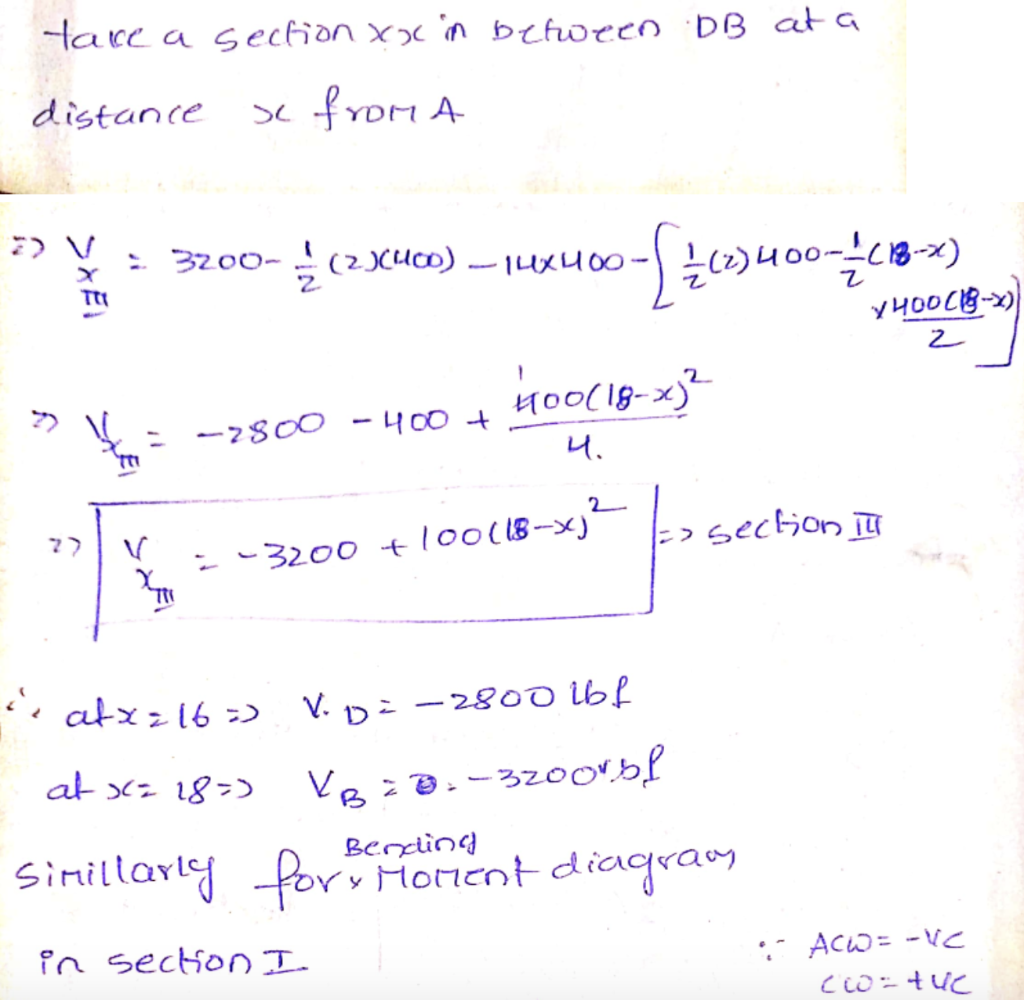 take a section xx in between DB at a
distance x from A
=> V x III = 3200 - 1/2 (2)(400) - 14x400 - [1/2 (2) 400 - 1/2 (18-x)
x 400(18-x)/2]
=> V x III = -2800 - 400 + 400(18-x)²/4.
=> V x III = -3200 + 100(18-x)² => section III
∴ at x=16 => V.D = -2800 lbf
at x= 18 => VB = -3200 lbf
Bending
Simillarly for Moment diagram
in section I
∵ ACW = -ve
CW = +ve